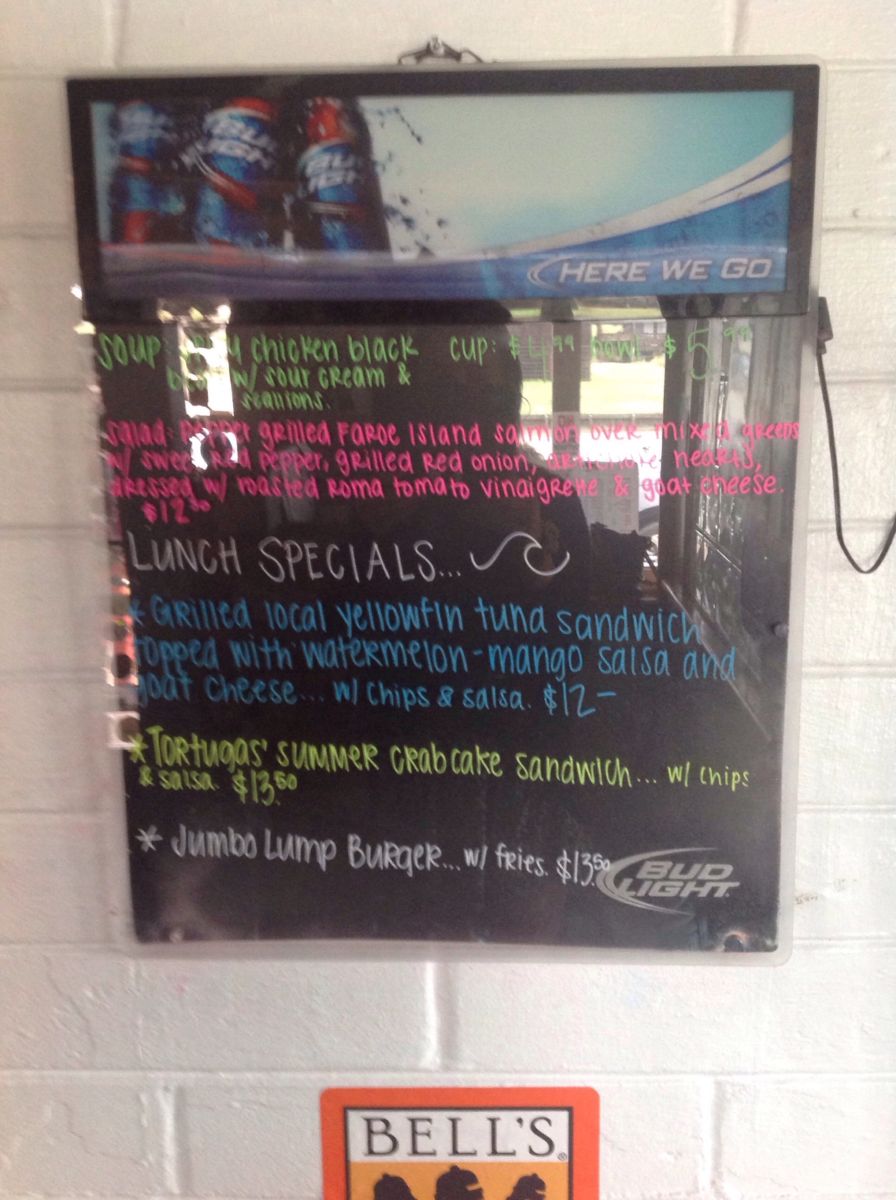 BUD LIGHT
BUD LIGHT
HERE WE GO
SOUP: chicken black cup: $4.99 bowl: $5.99
bean w/ sour cream &
scallions.
salad: pepper grilled Faroe Island salmon over mixed greens
w/ sweet red pepper, grilled red onion, artichoke hearts,
dressed w/ roasted roma tomato vinaigrette & goat cheese.
$12.50
LUNCH SPECIALS...
* Grilled local yellowfin tuna sandwich
topped with watermelon-mango salsa and
goat cheese... w/ chips & salsa. $12-
* Tortugas' summer crabcake sandwich... w/ chips
& salsa. $13.50
* Jumbo Lump Burger... w/ fries. $13.50
BUD
LIGHT
BELL'S